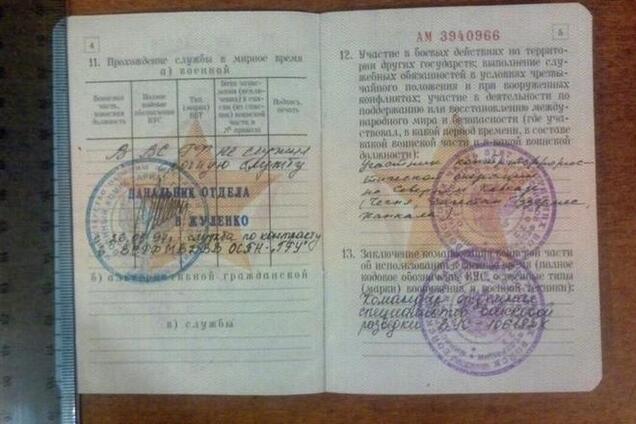 4
11. Прохождение службы в мирное время
а) военной
Воинская часть, воинская должность
Полное кодовое обозначение ВУС
Тип (марка) ВВТ
Подпись, печать
В ВС РФ не служил
службу
НАЧАЛЬНИК ОТДЕЛА
В ЖУЛЕНКО
служба по контракту
б) альтернативной гражданской
в) службы
АМ 3940966
5
12. Участие в боевых действиях на территории
других государств; выполнение служебных
обязанностей в условиях чрезвычайного
положения и при вооруженных
конфликтах; участие в деятельности по
поддержанию или восстановлению международного
мира и безопасности (где участвовал,
в какой период времени, в составе
какой воинской части и в какой воинской
должности):
Участник контртеррорис-
тической операции
на Северном Кавказе
13. Заключение командования воинской части
об использовании в военное время (полное
кодовое обозначение ВУС, основные типы
(марки) вооружения и военной техники):
Командир отделения
специалистов войсковой
разведки ВУС -